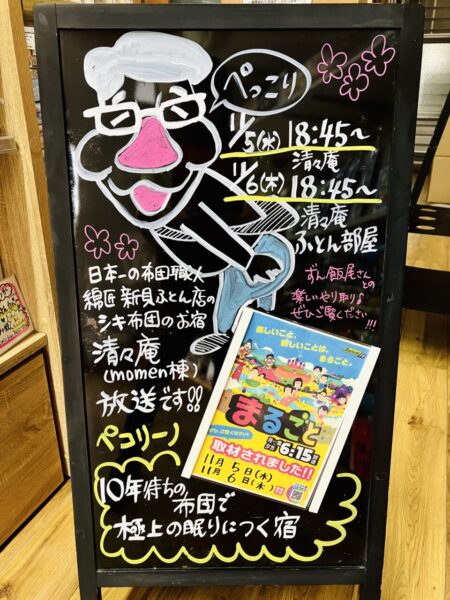 ぺっこり
11/5(水) 18:45～
清々庵
11/6(木) 18:45～
清々庵
ふとん部屋
ずん飯尾さん
との
楽しいやり取り♪
ぜひご覧ください
!!!
日本一の布団職人
綿匠 新貝ふとん店の
シキ布団のお宿
清々庵
(momen棟)
放送です!!
ペコリーノ
10年待ちの
布団で
極上の眠りにつく宿
楽しいこと、
嬉しいことは、
まるごと。
まるごと
ぜひ、ご覧ください!
月～金
夕方 6:15
取材されました!!
11月5日(水)
11月6日(木)